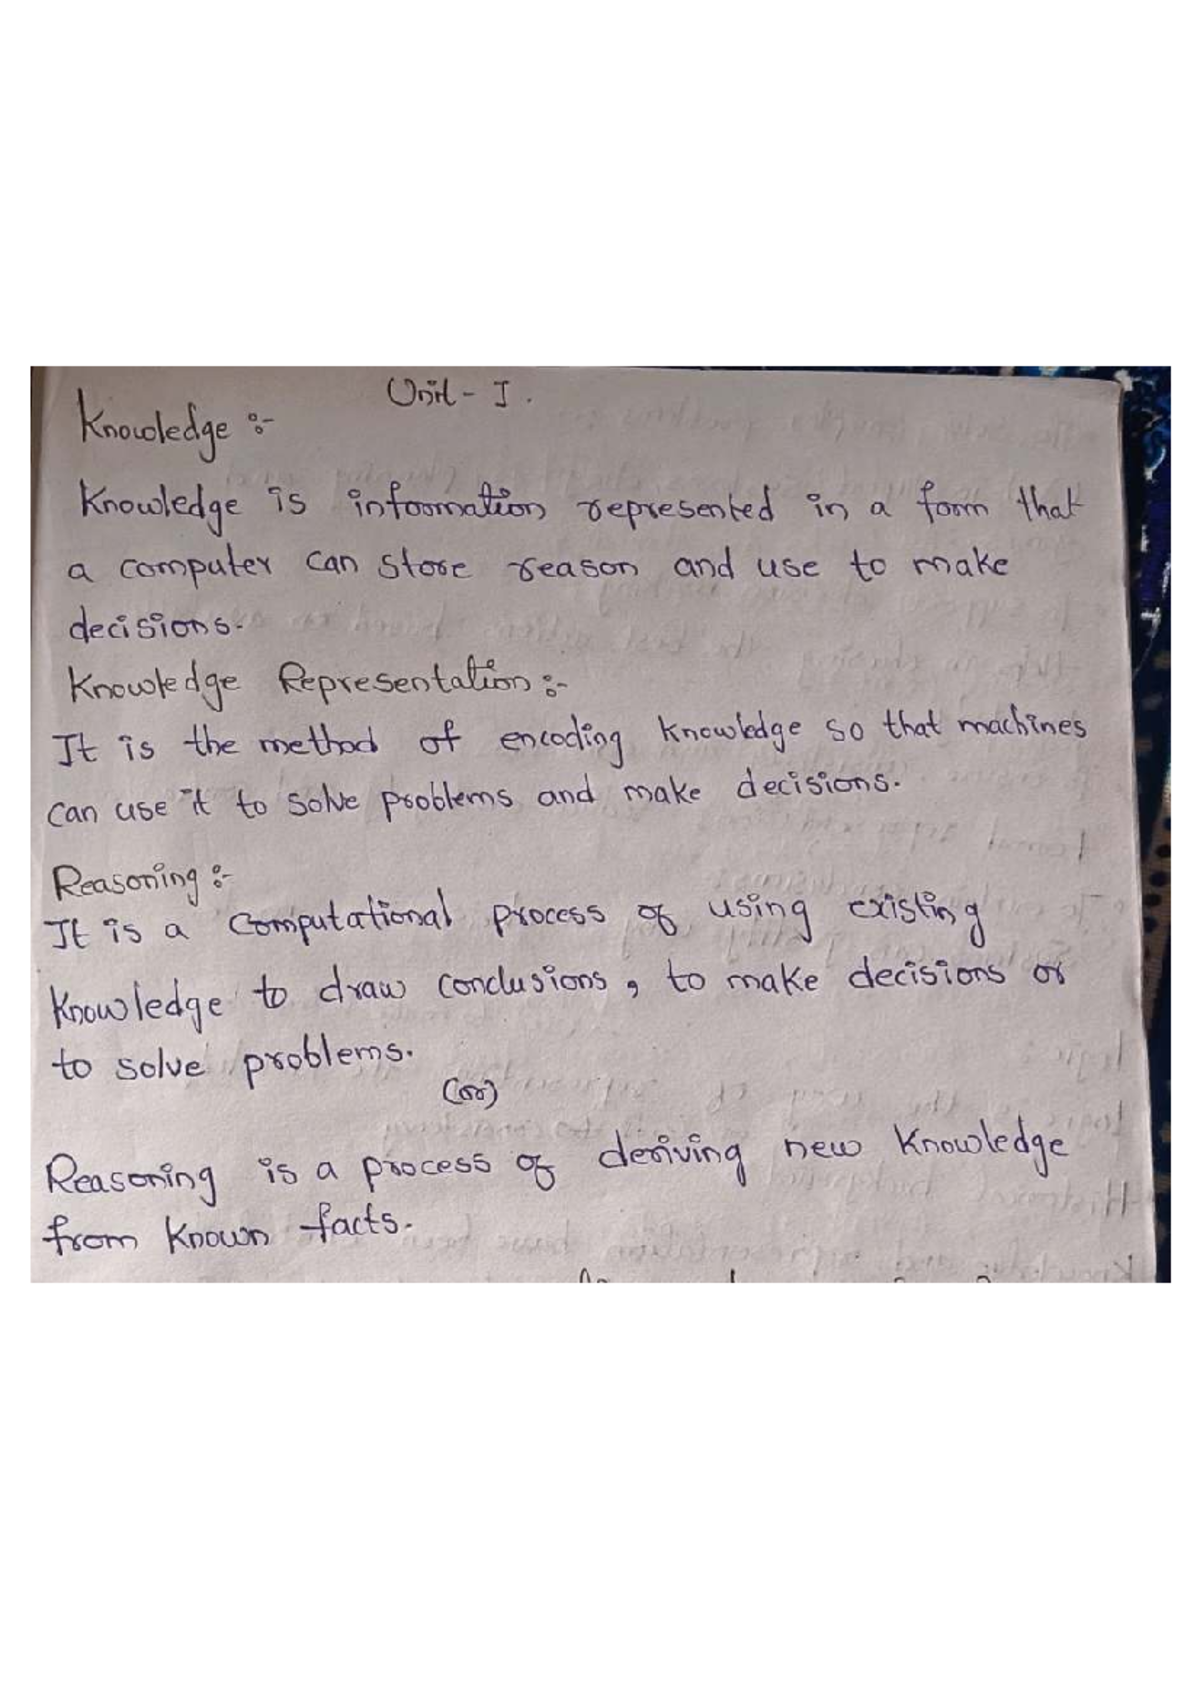 Unit - I.
Knowledge :-
Knowledge is information represented in a form that
a computer can store reason and use to make
decisions.
Knowledge Representation :-
It is the method of encoding knowledge so that machines
can use it to solve problems and make decisions.
Reasoning :-
It is a computational process of using existing
knowledge to draw conclusions, to make decisions or
to solve problems.
(or)
Reasoning is a process of deriving new knowledge
from known facts.